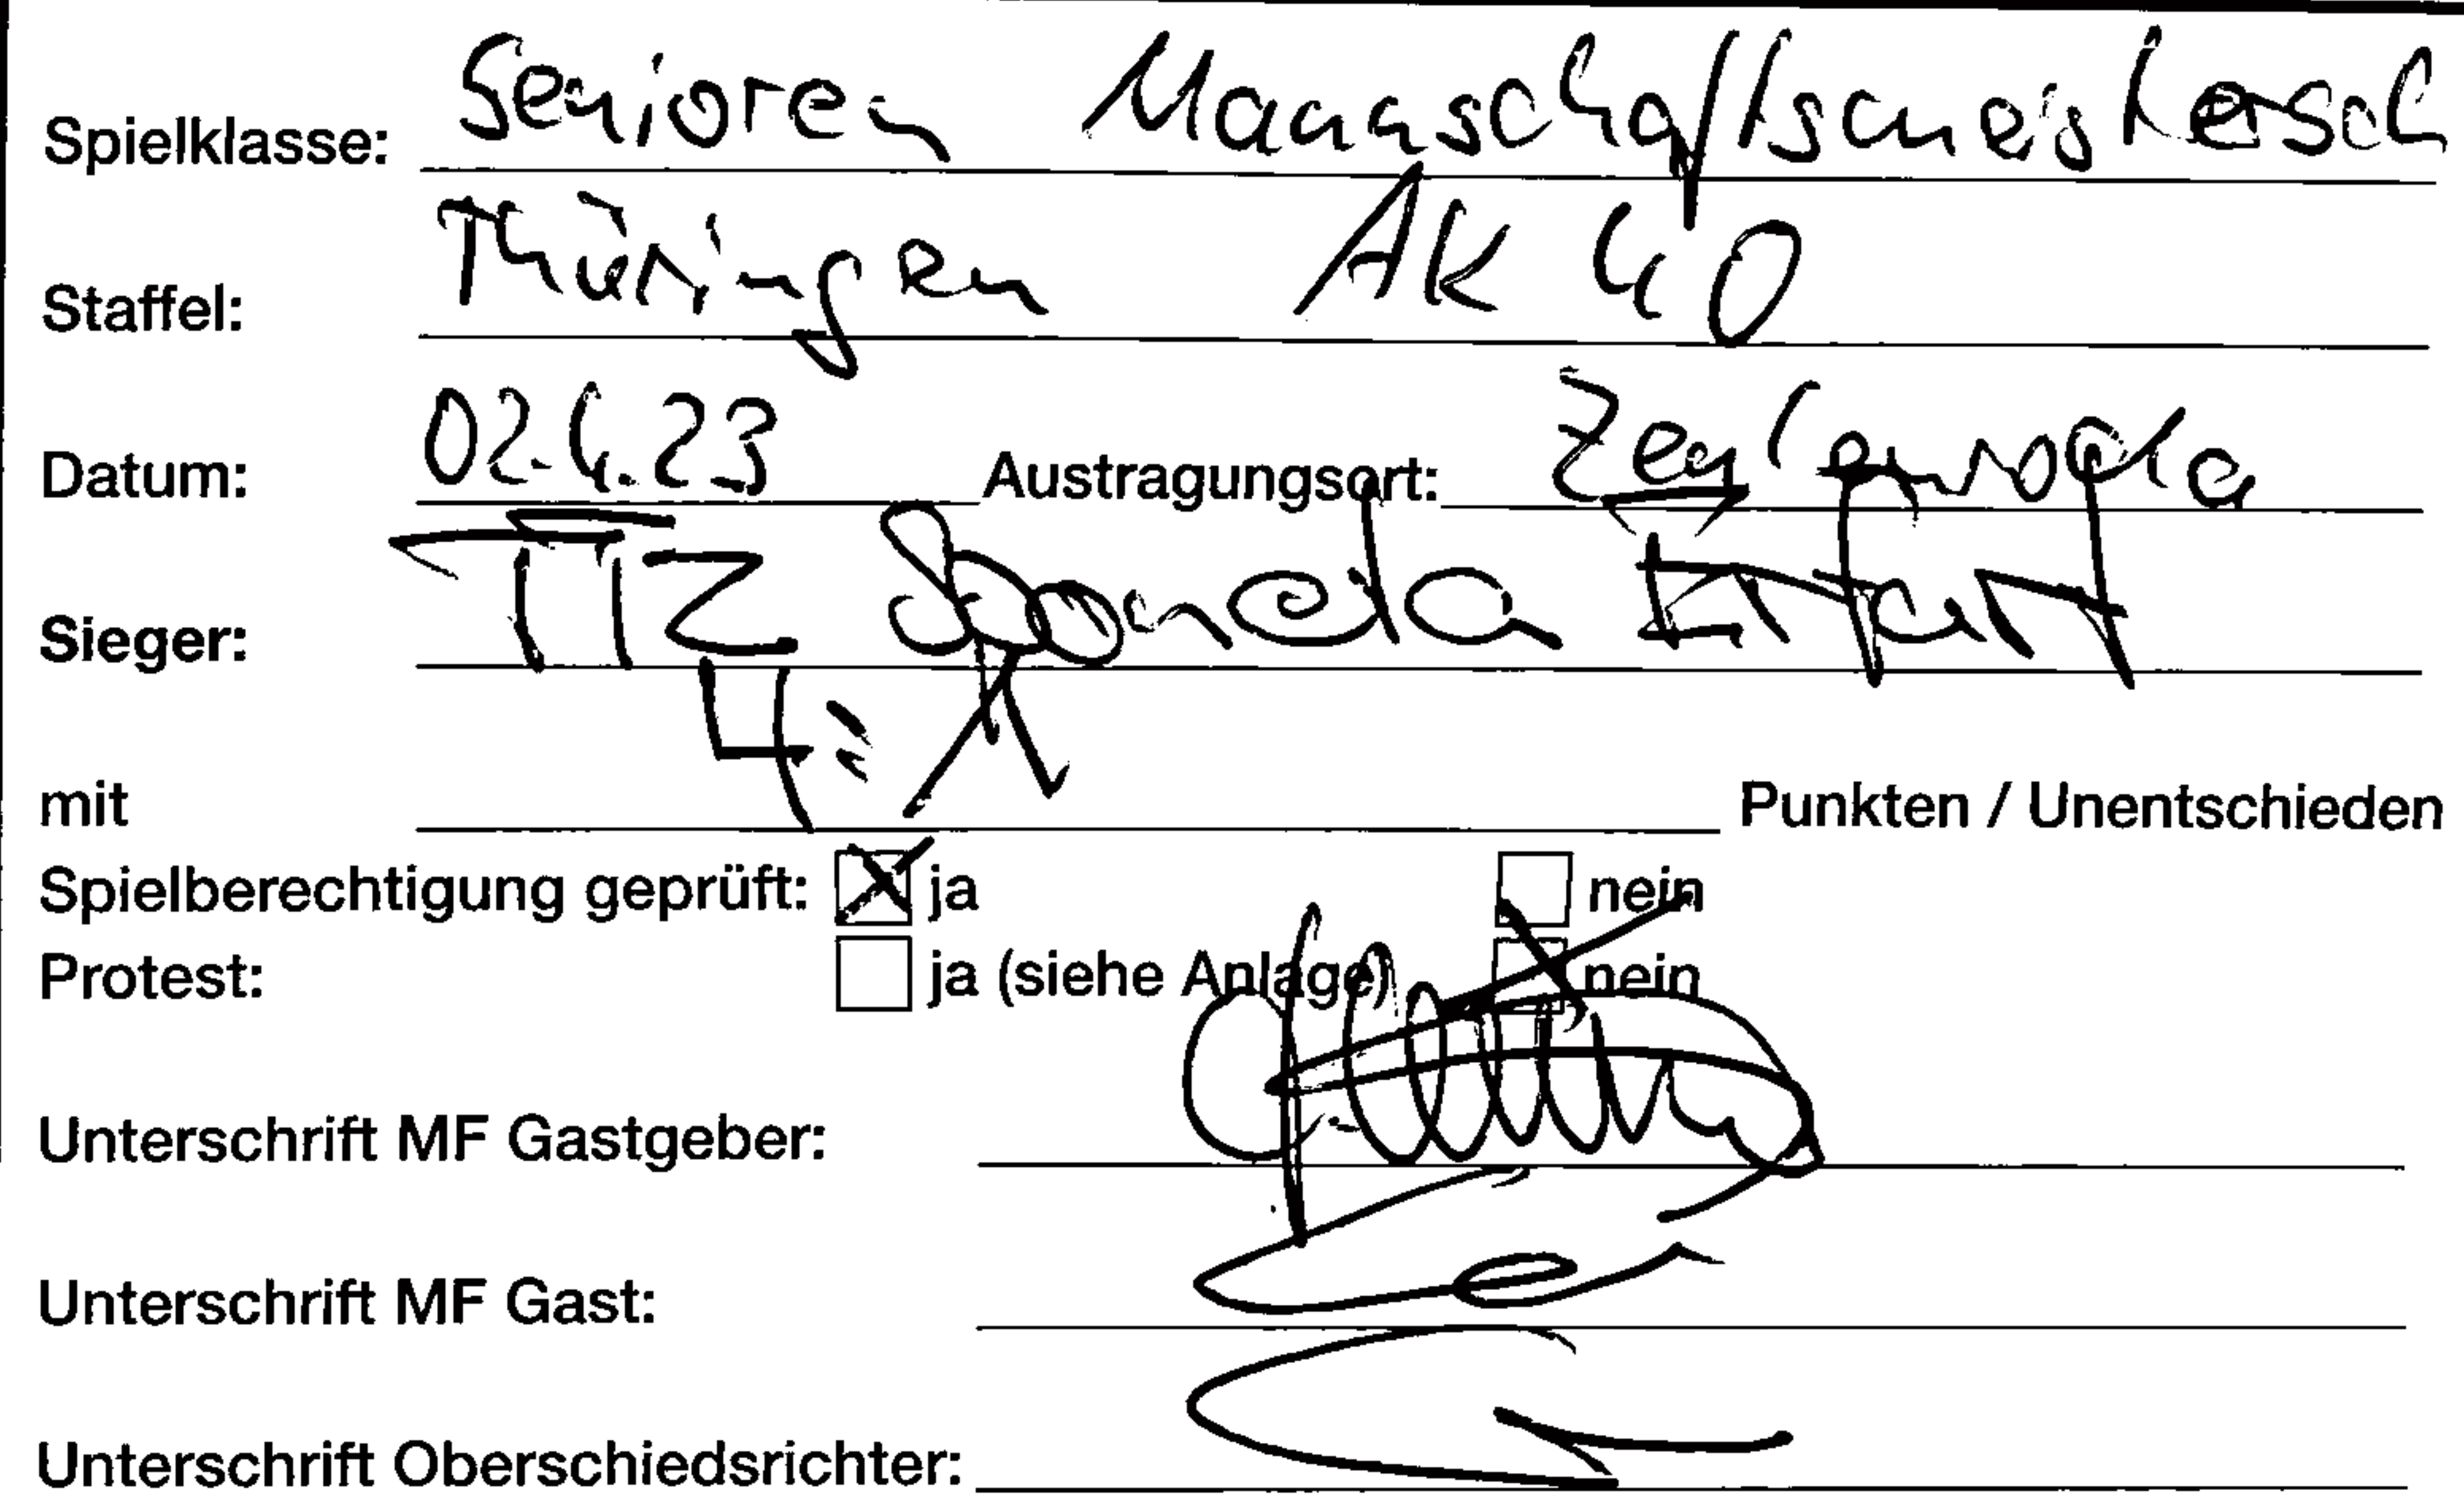 Spielklasse: Senioren Mannschaftsmeistersch
Staffel: Thüringen AK 40
Datum: 02.4.23 Austragungsort: Zeulenroda
Sieger: TTZ Sponeta Erfurt
mit 4:1 Punkten / Unentschieden
Spielberechtigung geprüft: ja nein
Protest: ja (siehe Anlage) nein
Unterschrift MF Gastgeber:
Unterschrift MF Gast:
Unterschrift Oberschiedsrichter: